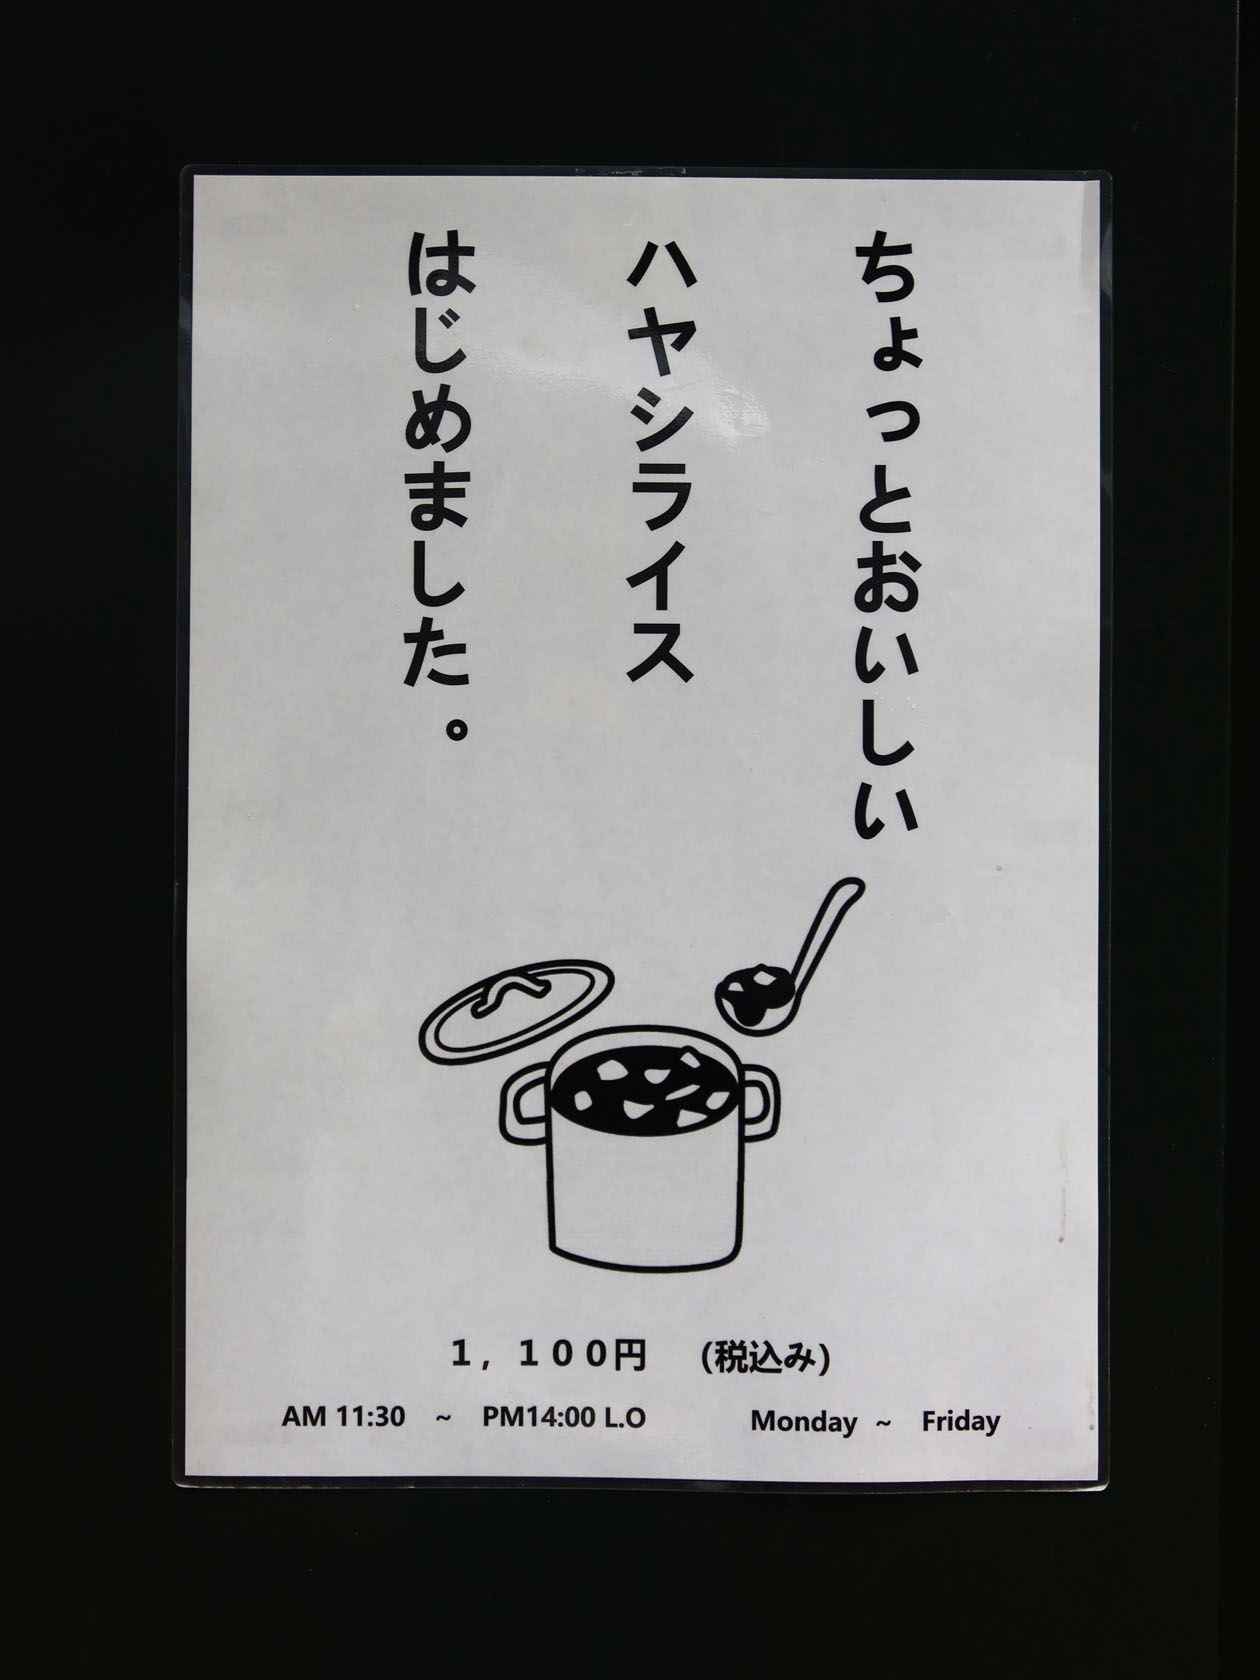 ちょっとおいしい
ハヤシライス
はじめました。
１，１００円　(税込み)
AM 11:30 ~ PM14:00 L.O Monday ~ Friday